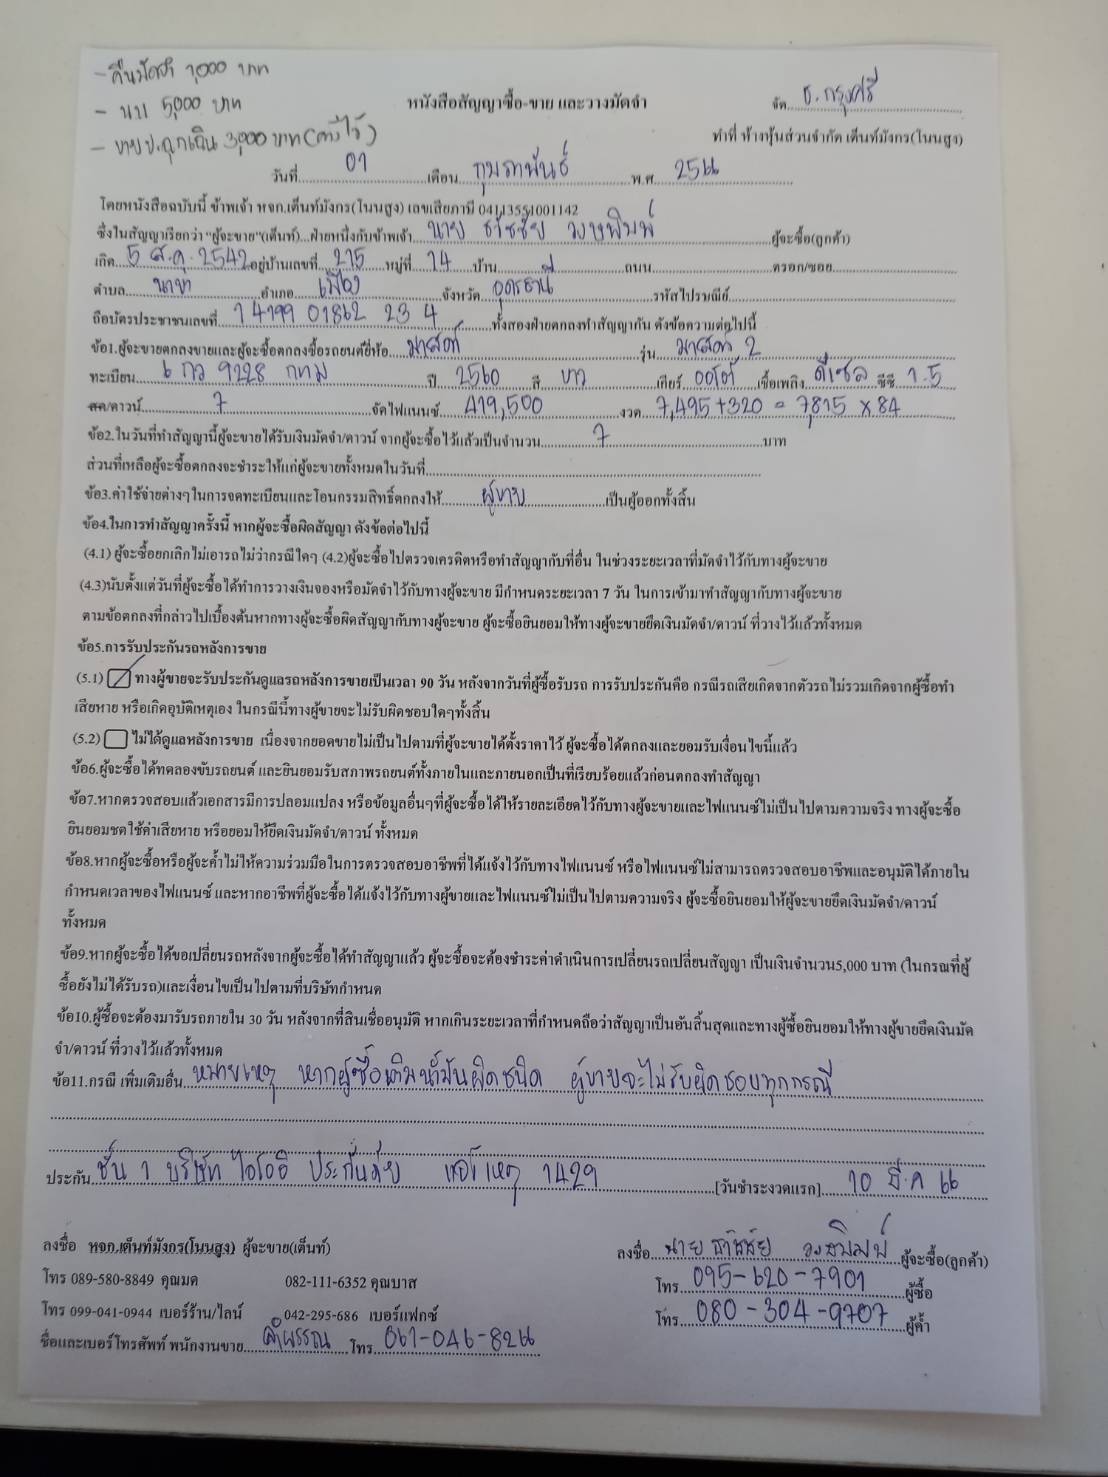 - คืนมัดจำ 1,000 บาท
- นน 5,000 บาท
- 3,000 บาท
หนังสือสัญญาซื้อ-ขาย และวางมัดจำ
จัด ธ.กรุงศรี
ทำที่ ห้างหุ้นส่วนจำกัด เต็นท์มังกร(โนนสูง)
วันที่ 01 เดือน กุมภาพันธ์ พ.ศ. 2566
โดยหนังสือฉบับนี้ ข้าพเจ้า หจก.เต็นท์มังกร(โนนสูง) เลขเสียภาษี 04113551001142
ซึ่งในสัญญาเรียกว่า "ผู้จะขาย"(เต็นท์)...ฝ่ายหนึ่งกับข้าพเจ้า นาย ธวัชชัย วงษพิมพ์ ผู้จะซื้อ(ลูกค้า)
เกิด 5 ส.ค. 2542 อยู่บ้านเลขที่ 215 หมู่ที่ 14 บ้าน ถนน ตรอก/ซอย
ตำบล นาข่า อำเภอ เมือง จังหวัด อุดรธานี รหัสไปรษณีย์
ถือบัตรประชาชนเลขที่ 1 4199 01862 23 4 ทั้งสองฝ่ายตกลงทำสัญญากัน ดังข้อความต่อไปนี้
ข้อ1.ผู้จะขายตกลงขายและผู้จะซื้อตกลงซื้อรถยนต์ยี่ห้อ มาสด้า รุ่น มาสด้า 2
ทะเบียน 6 กว 9228 กทม ปี 2560 สี ขาว เกียร์ ออโต้ เชื้อเพลิง ดีเซล ซีซี 1.5
สด/ดาวน์ 7 จัดไฟแนนซ์ 419,500 งวด 7,495+320 = 7,815 x 84
ข้อ2.ในวันที่ทำสัญญานี้ผู้จะขายได้รับเงินมัดจำ/ดาวน์ จากผู้จะซื้อไว้แล้วเป็นจำนวน 7 บาท
ส่วนที่เหลือผู้จะซื้อตกลงจะชำระให้แก่ผู้จะขายทั้งหมดในวันที่
ข้อ3.ค่าใช้จ่ายต่างๆในการจดทะเบียนและโอนกรรมสิทธิ์ตกลงให้ ผู้ขาย เป็นผู้ออกทั้งสิ้น
ข้อ4.ในการทำสัญญาครั้งนี้ หากผู้จะซื้อผิดสัญญา ดังข้อต่อไปนี้
(4.1) ผู้จะซื้อยกเลิกไม่เอารถไม่ว่ากรณีใดๆ (4.2)ผู้จะซื้อไปตรวจเครดิตหรือทำสัญญากับที่อื่น ในช่วงระยะเวลาที่มัดจำไว้กับทางผู้จะขาย
(4.3)นับตั้งแต่วันที่ผู้จะซื้อได้ทำการวางเงินจองหรือมัดจำไว้กับทางผู้จะขาย มีกำหนดระยะเวลา 7 วัน ในการเข้ามาทำสัญญากับทางผู้จะขาย
ตามข้อตกลงที่กล่าวไปเบื้องต้นหากทางผู้จะซื้อผิดสัญญากับทางผู้จะขาย ผู้จะซื้อยินยอมให้ทางผู้จะขายยึดเงินมัดจำ/ดาวน์ ที่วางไว้แล้วทั้งหมด
ข้อ5.การรับประกันรถหลังการขาย
(5.1) ทางผู้ขายจะรับประกันดูแลรถหลังการขายเป็นเวลา 90 วัน หลังจากวันที่ผู้ซื้อรับรถ การรับประกันคือ กรณีรถเสียเกิดจากตัวรถ ไม่รวมเกิดจากผู้ซื้อทำ
เสียหาย หรือเกิดอุบัติเหตุเอง ในกรณีนี้ทางผู้ขายจะไม่รับผิดชอบใดๆทั้งสิ้น
(5.2) ไม่ได้ดูแลหลังการขาย เนื่องจากยอดขายไม่เป็นไปตามที่ผู้จะขายได้ตั้งราคาไว้ ผู้จะซื้อได้ตกลงและยอมรับเงื่อนไขนี้แล้ว
ข้อ6.ผู้จะซื้อได้ทดลองขับรถยนต์ และยินยอมรับสภาพรถยนต์ทั้งภายในและภายนอกเป็นที่เรียบร้อยแล้วก่อนตกลงทำสัญญา
ข้อ7.หากตรวจสอบแล้วเอกสารมีการปลอมแปลง หรือข้อมูลอื่นๆที่ผู้จะซื้อได้ให้รายละเอียดไว้กับทางผู้จะขายและไฟแนนซ์ไม่เป็นไปตามความจริง ทางผู้จะซื้อ
ยินยอมชดใช้ค่าเสียหาย หรือยอมให้ยึดเงินมัดจำ/ดาวน์ ทั้งหมด
ข้อ8.หากผู้จะซื้อหรือผู้จะค้ำไม่ให้ความร่วมมือในการตรวจสอบอาชีพที่ได้แจ้งไว้กับทางไฟแนนซ์ หรือไฟแนนซ์ไม่สามารถตรวจสอบอาชีพและอนุมัติได้ภายใน
กำหนดเวลาของไฟแนนซ์ และหากอาชีพที่ผู้จะซื้อได้แจ้งไว้กับทางผู้ขายและไฟแนนซ์ไม่เป็นไปตามความจริง ผู้จะซื้อยินยอมให้ผู้จะขายยึดเงินมัดจำ/ดาวน์
ทั้งหมด
ข้อ9.หากผู้จะซื้อได้ขอเปลี่ยนรถหลังจากผู้จะซื้อได้ทำสัญญาแล้ว ผู้จะซื้อจะต้องชำระค่าดำเนินการเปลี่ยนรถเปลี่ยนสัญญา เป็นเงินจำนวน5,000 บาท (ในกรณที่ผู้
ซื้อยังไม่ได้รับรถ)และเงื่อนไขเป็นไปตามที่บริษัทกำหนด
ข้อ10.ผู้ซื้อจะต้องมารับรถภายใน 30 วัน หลังจากที่สินเชื่ออนุมัติ หากเกินระยะเวลาที่กำหนดถือว่าสัญญาเป็นอันสิ้นสุดและทางผู้ซื้อยินยอมให้ทางผู้ขายยึดเงินมัด
จำ/ดาวน์ ที่วางไว้แล้วทั้งหมด
ข้อ11.กรณี เพิ่มเติมอื่น หมายเหตุ หากผู้ซื้อเติมน้ำมันผิดชนิด ผู้ขายจะไม่รับผิดชอบทุกกรณี
ประกัน ชั้น 1 บริษัท ไอโออิ ประกันภัย แจ้งเหตุ 1429 [วันชำระงวดแรก] 10 มี.ค 66
ลงชื่อ หจก.เต็นท์มังกร(โนนสูง) ผู้จะขาย(เต็นท์)
ลงชื่อ นาย ธวัชชัย วงษพิมพ์ ผู้จะซื้อ(ลูกค้า)
โทร 089-580-8849 คุณมด 082-111-6352 คุณบาส
โทร 095-620-7901 ผู้ซื้อ
โทร 099-041-0944 เบอร์ร้าน/ไลน์ 042-295-686 เบอร์แฟกซ์
โทร 080-304-9707 ผู้ค้ำ
ชื่อและเบอร์โทรศัพท์ พนักงานขาย คำพรรณ โทร 061-046-8266